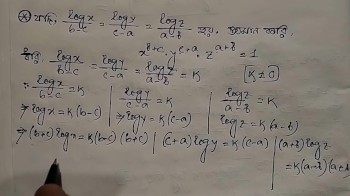 যদি, log x / b-c = log y / c-a = log z / a-b হয়, প্রমাণ করো,
x^b+c . y^c+a . z^a+b = 1
ধরি, log x / b-c = log y / c-a = log z / a-b = K [K ≠ 0]
∴ log x / b-c = K | log y / c-a = K | log z / a-b = K
⇒ log x = K(b-c) | ⇒ log y = K(c-a) | log z = K(a-b)
⇒ (b+c) log x = K(b-c)(b+c) | (c+a) log y = K(c-a) | (a+b) log z
= K(a-b)(a+